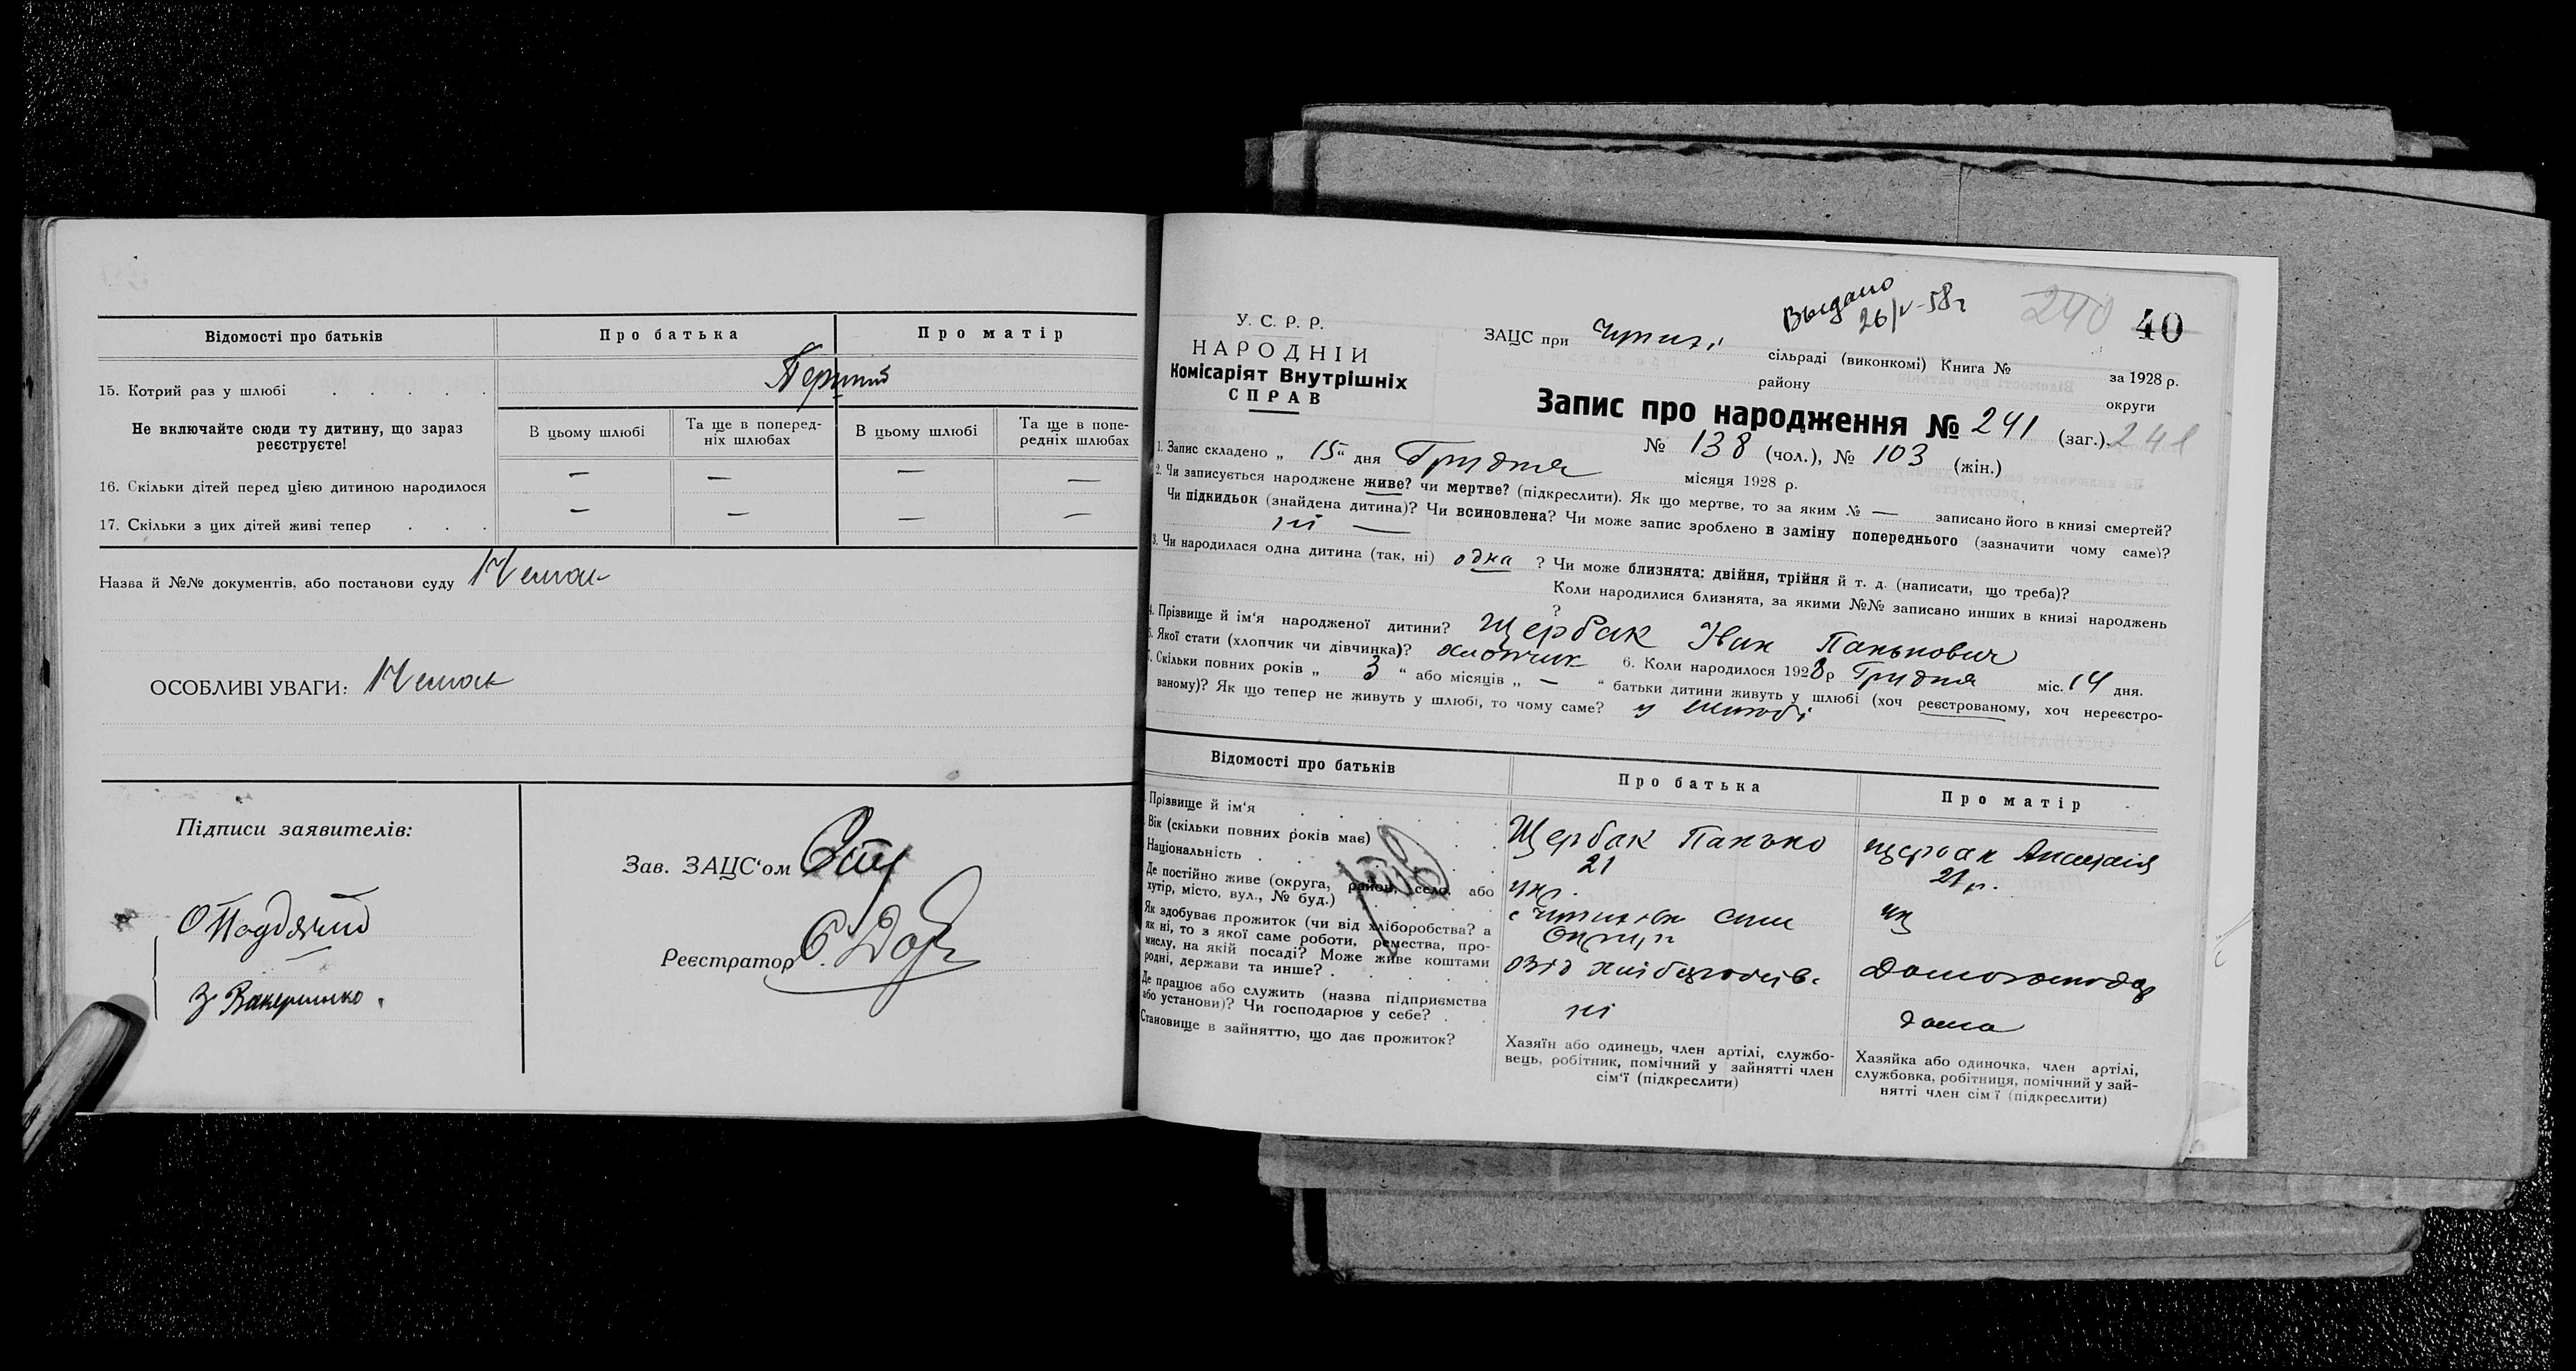 Відомості про батьків
Про батька
Про матір
15. Котрий раз у шлюбі
Перший
Не включайте сюди ту дитину, що зараз
реєструєте!
В цьому шлюбі
Та ще в поперед-
ніх шлюбах
В цьому шлюбі
Та ще в попе-
редніх шлюбах
16. Скільки дітей перед цією дитиною народилося — — — —
17. Скільки з цих дітей живі тепер — — — —
Назва й №№ документів, або постанови суду Немає
ОСОБЛИВІ УВАГИ: Немає
Підписи заявителів:
Зав. ЗАЦС'ом
Реєстратор
Выдано
26/V-58 г
240
40
У. С. Р. Р.
НАРОДНІЙ
Комісаріят Внутрішніх
СПРАВ
ЗАЦС при
сільраді (виконкомі) Книга №
за 1928 р.
району
округи
Запис про народження № 241 (заг.). 241
№ 138 (чол.), № 103 (жін.)
1. Запис складено „ 15“ дня Грудня місяця 1928 р.
2. Чи записується народжене живе? чи мертве? (підкреслити). Як що мертве, то за яким № — записано його в книзі смертей?
Чи підкидьок (знайдена дитина)? Чи всиновлена? Чи може запис зроблено в заміну попереднього (зазначити чому саме)?
ні —
3. Чи народилася одна дитина (так, ні) одна ? Чи може близнята: двійня, трійня й т. д. (написати, що треба)?
Коли народилися близнята, за якими №№ записано инших в книзі народжень
?
4. Прізвище й ім'я народженої дитини? Щербак Іван Панькович
5. Якої стати (хлопчик чи дівчинка)? хлопчик 6. Коли народилося 1928 р Грудня міс. 14 дня.
7. Скільки повних років „ 3 “ або місяців „ — “ батьки дитини живуть у шлюбі (хоч реєстрованому, хоч нереєстро-
ваному)? Як що тепер не живуть у шлюбі, то чому саме? у шлюбі
Відомості про батьків
Про батька
Про матір
Прізвище й ім'я
Щербак Панько
Щербак Анастасія
Вік (скільки повних років має)
21
21 р.
Національність
укр.
ук
Де постійно живе (округа, район, село, або
хутір, місто, вул., № буд.)
Як здобуває прожиток (чи від хліборобства? а
як ні, то з якої саме роботи, ремества, про-
мислу, на якій посаді? Може живе коштами
родні, держави та инше?
Де працює або служить (назва підприємства
або установи)? Чи господарює у себе?
ні
дома
Становище в зайняттю, що дає прожиток?
Хазяїн або одинець, член артілі, службо-
вець, робітник, помічний у зайнятті член
сім'ї (підкреслити)
Хазяйка або одиночка, член артілі,
службовка, робітниця, помічний у зай-
нятті член сім'ї (підкреслити)